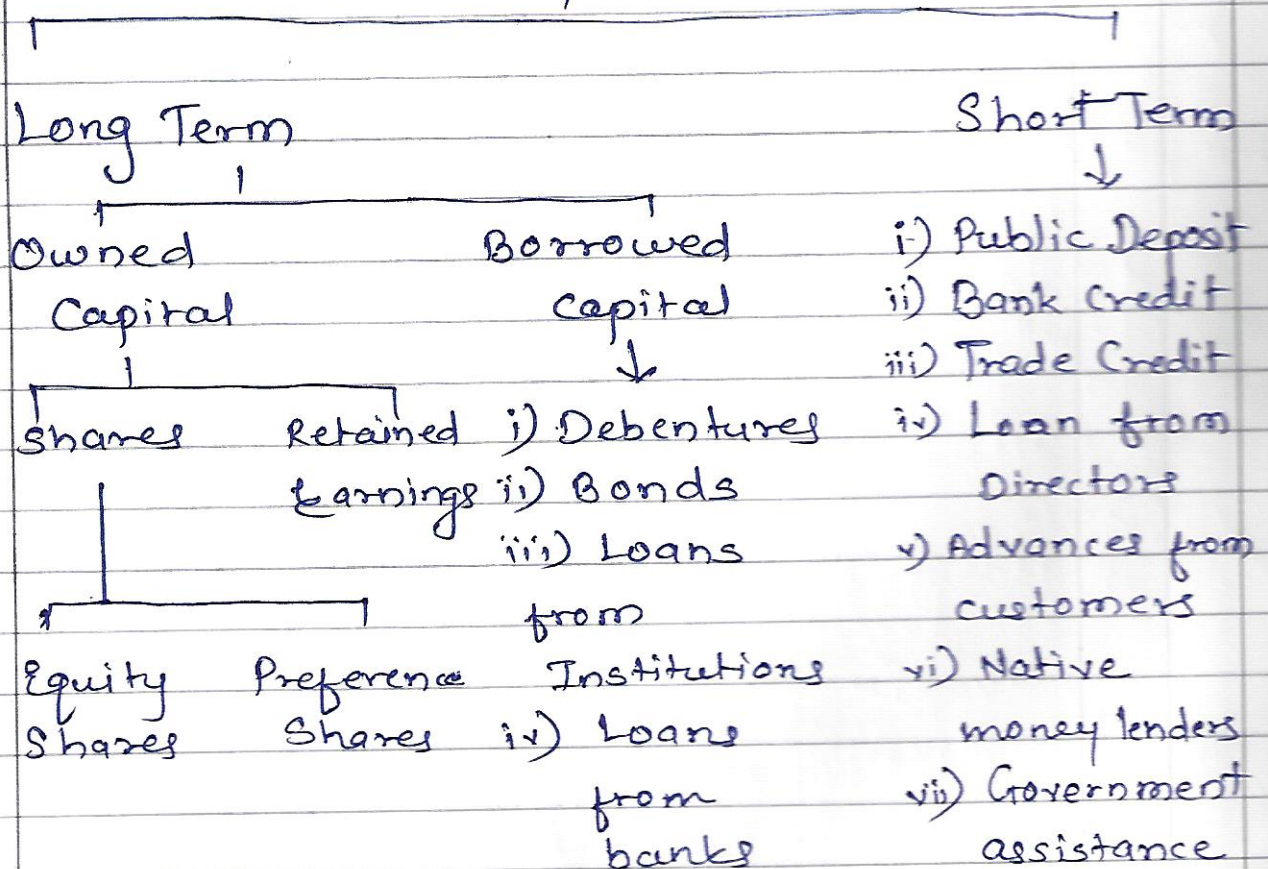 Long Term
Short Term
Owned
Capital
Shares
Retained
Earnings
Equity
Shares
Preference
Shares
Borrowed
Capital
i) Debentures
ii) Bonds
iii) Loans
from
Institutions
iv) Loans
from
banks
i) Public Deposit
ii) Bank Credit
iii) Trade Credit
iv) Loan from
Directors
v) Advances from
customers
vi) Native
money lenders
vii) Government
assistance